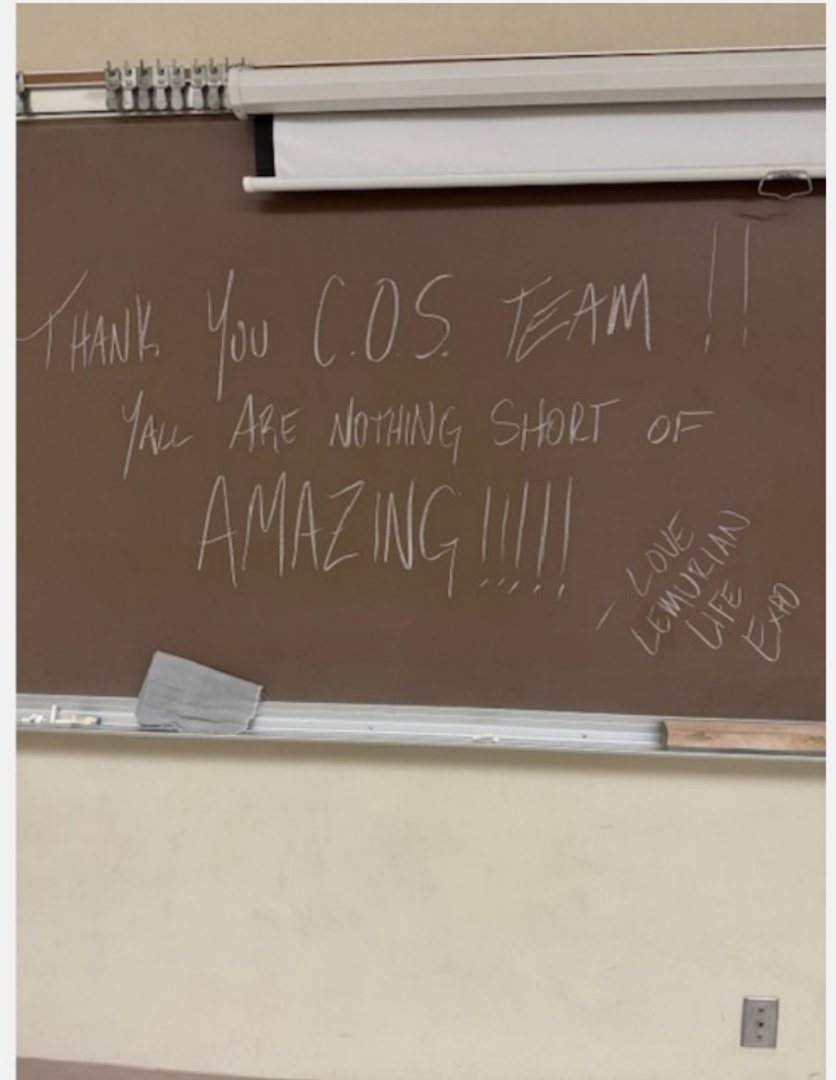 THANK YOU C.O.S. TEAM !!
YALL ARE NOTHING SHORT OF
AMAZING!!!!!
- LOVE
LEMURIAN
LIFE
EXPO